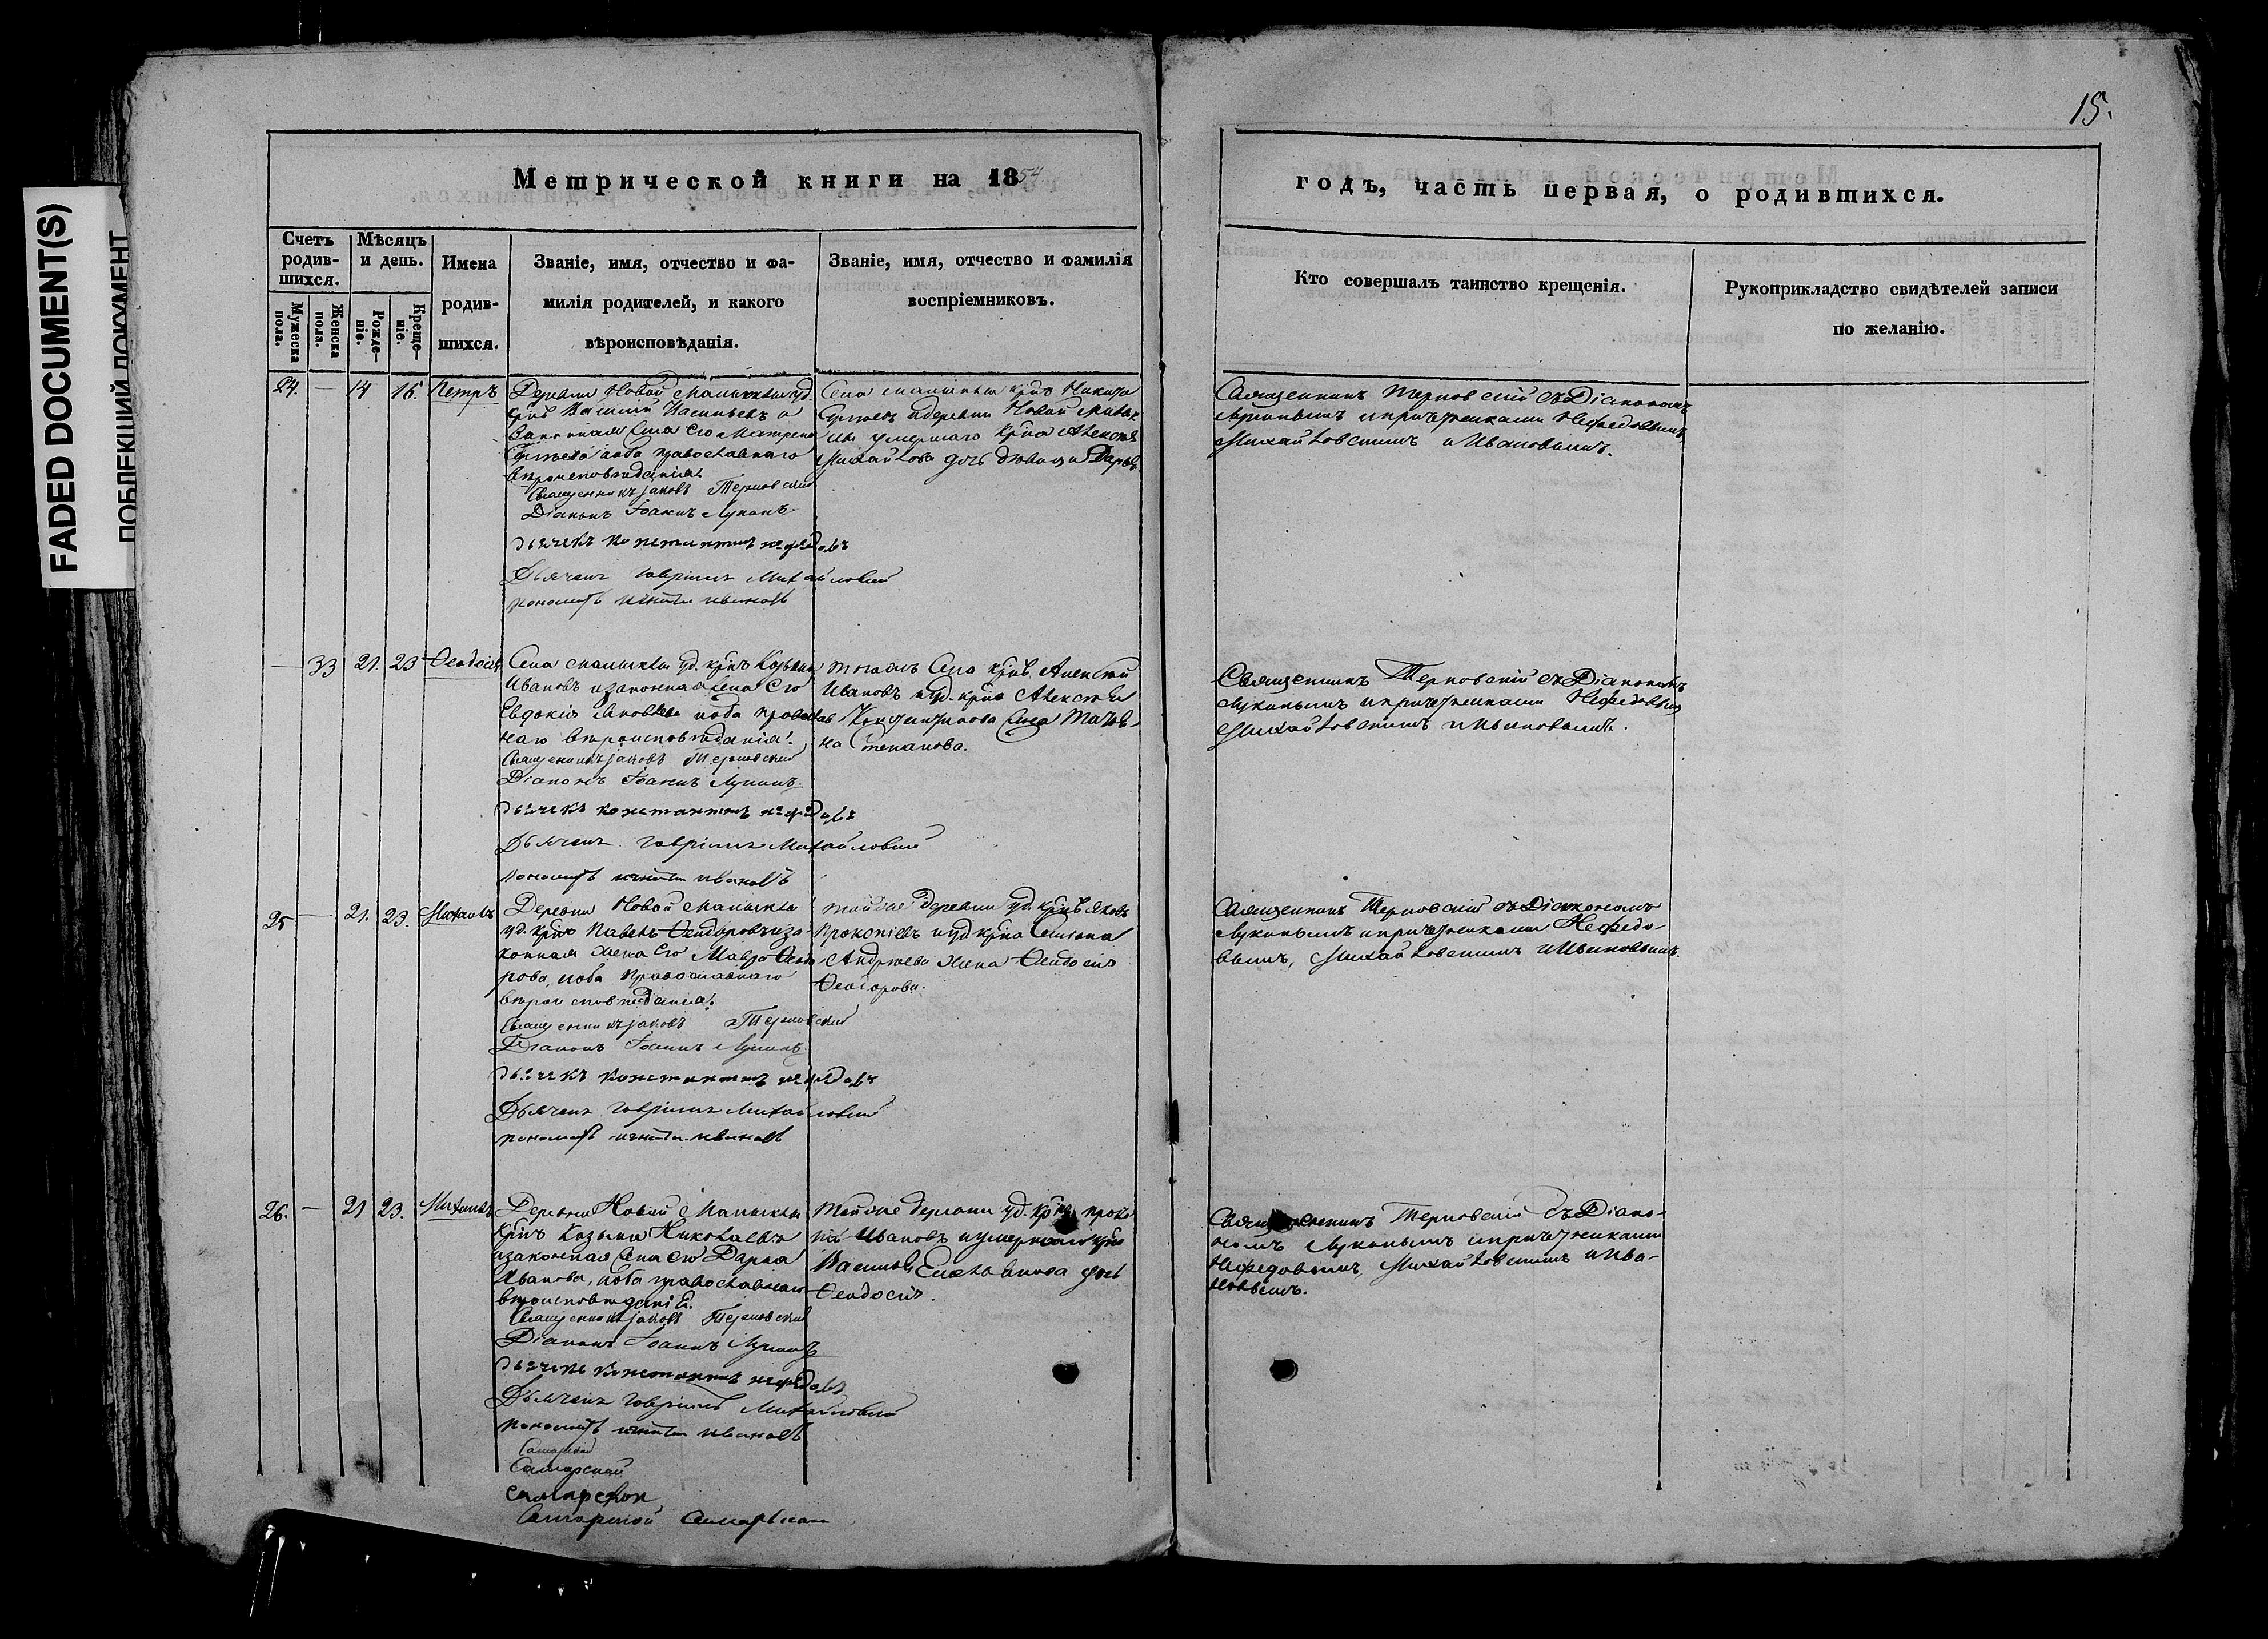 15.
FADED DOCUMENT(S)
ПОБЛЕКШИЙ ДОКУМЕНТ
Метрической книги на 1854
годъ, часть первая, о родившихся.
Счетъ родив-шихся.
Мужеска пола.
Женска пола.
Мѣсяцъ и день.
Рожде-ніе.
Креще-ніе.
Имена родив-шихся.
Званіе, имя, отчество и фа-
милія родителей, и какого
вѣроисповѣданія.
Званіе, имя, отчество и фамилія
воспріемниковъ.
Кто совершалъ таинство крещенія.
Рукоприкладство свидѣтелей записи
по желанію.
24. — 14 16. Петръ
Деревни Новой Малыклы уд.
крнъ Василій Васильевъ и
законная жена его Матрена
Сергѣева оба православнаго
вѣроисповѣданія.
Священникъ Іаковъ Терновскій
Діаконъ Іоаннъ Лукинъ
дьячекъ Константинъ Нефедовъ
Дьячекъ Гавріилъ Михайловскій
пономарь Игнатій Ивановъ
Села Малыклы крнъ Никита
Сергѣевъ и деревни Новой Малык-
лы умершаго крна Алексѣя
Михайлова дочь дѣвица Дарья
Священникъ Терновскій съ Діакономъ
Лукинымъ и причетниками Нефедовымъ
Михайловскимъ и Ивановымъ.
— 33 21. 23 Ѳеодосія
Села Малыклы уд. крнъ Козьма
Ивановъ и законная жена его
Евдокія Яковлева оба православ
наго вѣроисповѣданія.
Священникъ Іаковъ Терновскій
Діаконъ Іоаннъ Лукинъ
дьячекъ Константинъ Нефедовъ
Дьячекъ Гавріилъ Михайловскій
пономарь Игнатій Ивановъ
того жъ села крнъ Алексѣй
Ивановъ и уд. крна Алексѣя
Константинова жена Татья-
на Степанова.
Священникъ Терновскій съ Діакономъ
Лукинымъ и причетниками Нефедовымъ
Михайловскимъ и Ивановымъ.
25 — 21. 23. Михаилъ
Деревни Новой Малыклы
уд. крнъ Павелъ Ѳеодоровъ и за-
конная жена его Мавра Ѳеодо
рова, оба православнаго
вѣроисповѣданія.
Священникъ Іаковъ Терновскій
Діаконъ Іоаннъ Лукинъ
дьячекъ Константинъ Нефедовъ
Дьячекъ Гавріилъ Михайловскій
пономарь Игнатій Ивановъ
той же деревни уд. крнъ Яковъ
Прокопіевъ и уд. крна Семена
Андреева жена Ѳеодосія
Ѳеодорова.
Священникъ Терновскій съ Діакономъ
Лукинымъ и причетниками Нефедо-
вымъ, Михайловскимъ и Ивановымъ.
26. — 21 23. Михаилъ
Деревни Новой Малыклы
крнъ Козьма Николаевъ
и законная жена его Дарья
Иванова, оба православнаго
вѣроисповѣданія.
Священникъ Іаковъ Терновскій
Діаконъ Іоаннъ Лукинъ
дьячекъ Константинъ Нефедовъ
Дьячекъ Гавріилъ Михайловскій
пономарь Игнатій Ивановъ
Самарской
Самарской
самарской
Самарской Самарской
той же деревни уд. крнъ Проко
пій Ивановъ и умершаго крна
Василья дочь
Ѳеодосія.
Священникъ Терновскій съ Діако-
номъ Лукинымъ и причетниками
Нефедовымъ, Михайловскимъ и Ива-
новымъ.